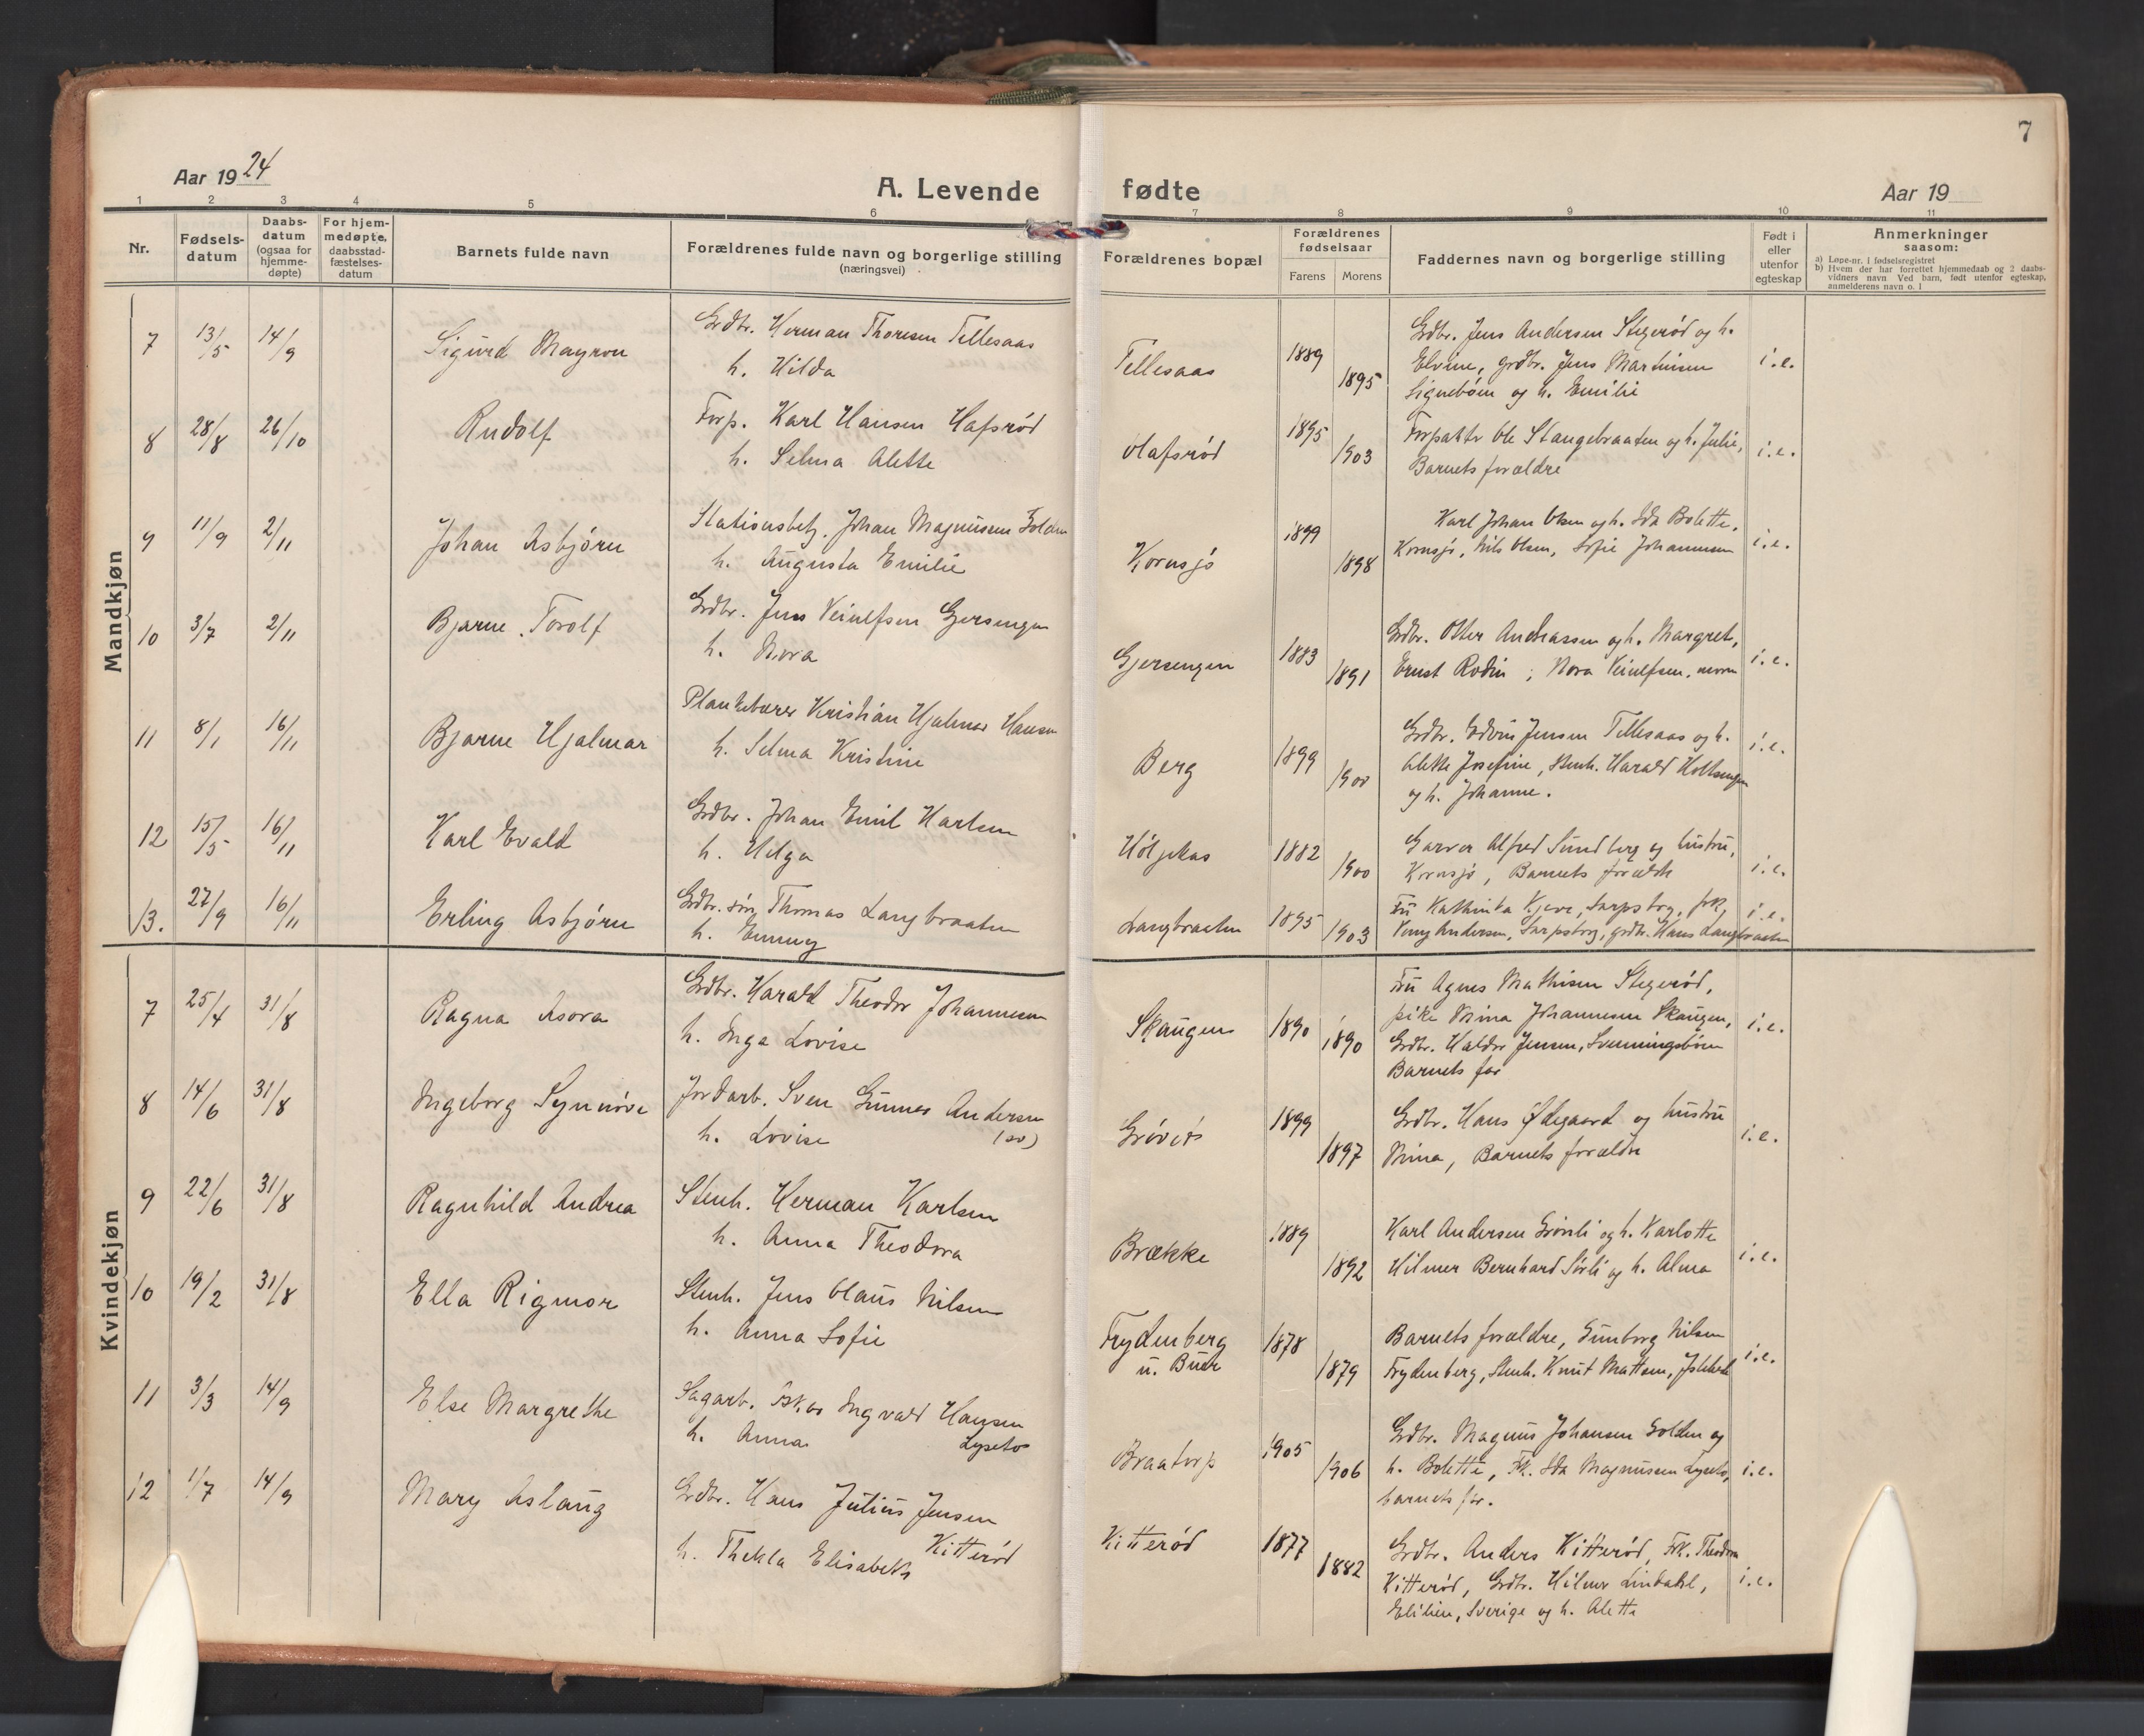 7
Aar 1924
A. Levende fødte
Aar 19
1 2 3 4 5 6 7 8 9 10 11
Nr.
Fødsels-
datum
Daabs-
datum
(ogsaa for
hjemme-
døpte)
For hjem-
medøpte,
daabsstad-
fæstelses-
datum
Barnets fulde navn
Forældrenes fulde navn og borgerlige stilling
(næringsvei)
Forældrenes bopæl
Forældrenes
fødselsaar
Farens Morens
Faddernes navn og borgerlige stilling
Født i
eller
utenfor
egteskap
Anmerkninger
saasom:
a) Løpe-nr. i fødselsregistret
b) Hvem der har forrettet hjemmedaab og 2 daabs-
vidners navn Ved barn, født utenfor egteskap,
anmelderens navn o. l
Mandkjøn
7 13/5 14/9 Sigurd Mayron
Grdbr. Herman Thoresen Tellesaas
h. Hilda
Tellesaas 1889 1895
Grdbr. Jens Andersen Stegerød og h.
Elvine, grdbr. Jens Martinsen
Signebøen og h. Emilie
i.e.
8 28/8 26/10 Rudolf
Forp. Karl Hansen Hafsrød
h. Selma Alette
Olafsrød 1895 1903
Forpakter Ole Stangebraaten og h. Julie,
Barnets forældre
i.e.
9 11/9 2/11 Johan Asbjørn
Stationsbetj. Johan Magnussen Solden
h. Augusta Emilie
Kornsjø 1899 1898
Karl Johan Olsen og h. Ida Bolette,
Kornsjø, Nils Olsen, Sofie Johannessen
i.e.
10 3/7 2/11 Bjarne Torolf
Grdbr. Jens Veiulfsen Gjersengen
h. Nora
Gjersengen 1883 1891
Grdbr. Otter Andreassen og h. Margret,
Ernst Rodin; Nora Veiulfsen, moren
i.e.
11 8/1 16/11 Bjarne Hjalmar
Plankebærer Kristian Hjalmar Hansen
h. Selma Kristine
Berg 1899 1900
Grdbr. Edvin Jensen Tellesaas og h.
Alette Josefine, Stenh. Harald Holtsengen
og h. Johanne.
i.e.
12 15/5 16/11 Karl Evald
Grdbr. Johan Emil Karlsen
h. Helga
Høljekas 1882 1900
Garver Alfred Sundberg og hustru,
Kornsjø, Barnets forældre
i.e.
13. 27/9 16/11 Erling Asbjørn
Grdbr. søn Thomas Langbraaten
h. Emmy
Langbraaten 1895 1903
Fru Kathinka Kjære, Sarpsborg, frk.
Andersen, Sarpsborg, grdbr. Hans Langbraaten
i.e.
Kvindekjøn
7 25/4 31/8 Ragna Asora
Grdbr. Harald Theodor Johannessen
h. Inga Lovise
Skaugen 1890 1890
Fru Agnes Mathisen Stegerød,
pike Mina Johannessen Skaugen,
Grdbr. Haldor Jensen, Svenningsbøen
Barnets far
i.e.
8 14/6 31/8 Ingeborg Synnøve
Jordarb. Sven Gunnar Andersen
h. Lovise (sv)
1899 1897
Grdbr. Hans Ødegaard og hustru
Mina, Barnets forældre
i.e.
9 22/6 31/8 Ragnhild Andrea
Stenh. Herman Karlsen
h. Anna Theodora
Brække 1889 1892
Karl Andersen Grønli og h. Karlotte
Hilmer Bernhard Sørli og h. Alma
i.e.
10 19/2 31/8 Ella Rigmor
Stenh. Jens Olaus Nilsen
h. Anna Sofie
Frydenberg
u. Buer
1878 1879
Barnets forældre, Gunborg Nilsen
Frydenberg, Stenh. Knut Mattsen,
i.e.
11 3/3 14/9 Else Margrethe
Sagarb. Oskar Ingvald Hansen
h. Anna Lysetos
Braatorp 1905 1906
Grdbr. Magnus Johansen Solden og
h. Bolette, Frk. Ida Magnussen Lysetos,
barnets far.
i.e.
12 1/7 14/9 Mary Aslaug
Grdbr. Hans Julius Jensen
Kitterød
h. Thekla Elisabeth
Kitterød 1877 1882
Grdbr. Anders Kitterød, Frk. Theodora
Kitterød, Grdbr. Hilmer Lindahl,
Elilien, Sverige og h. Alette
i.e.